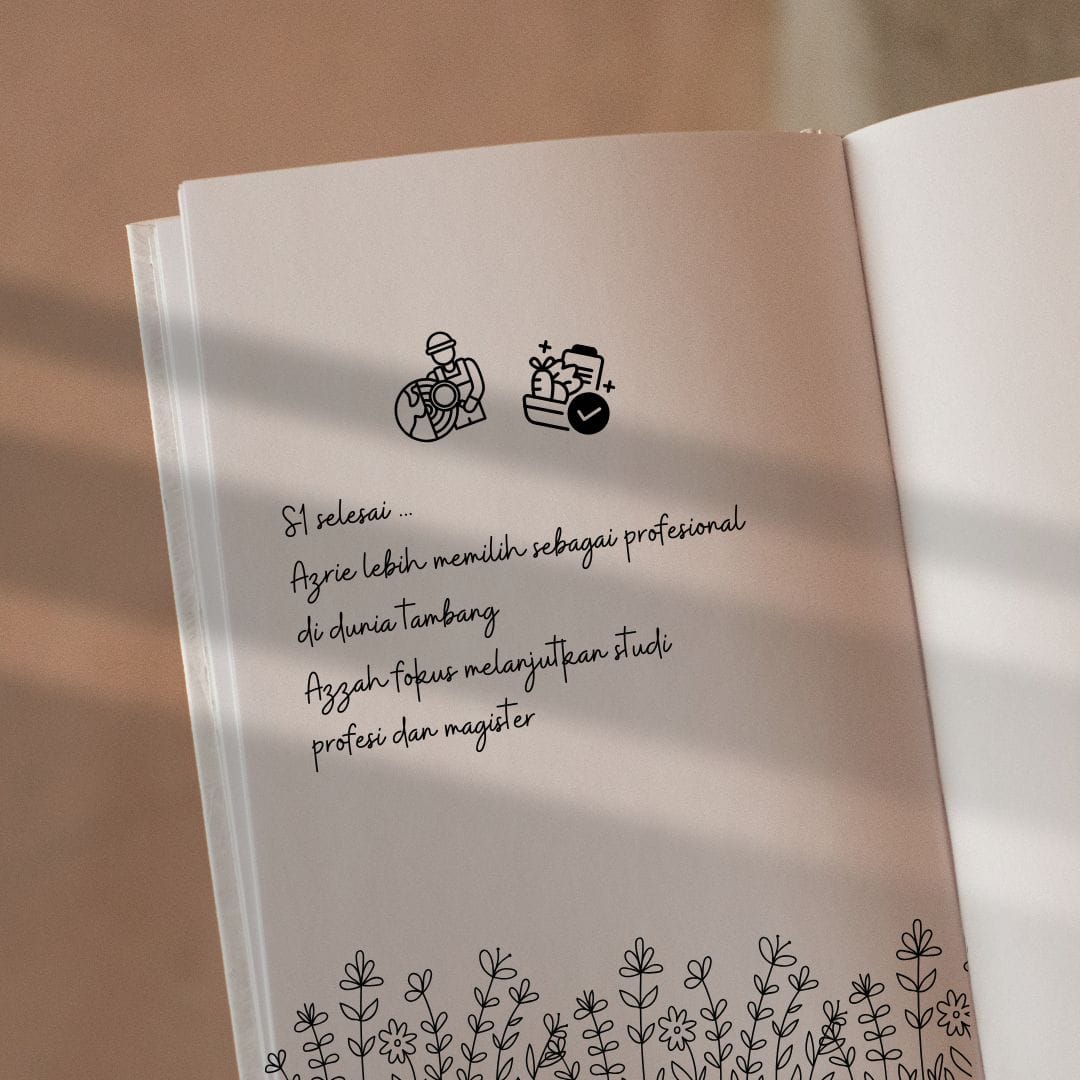 S1 selesai ...
Azrie lebih memilih sebagai profesional
di dunia tambang
Azzah fokus melanjutkan studi
profesi dan magister